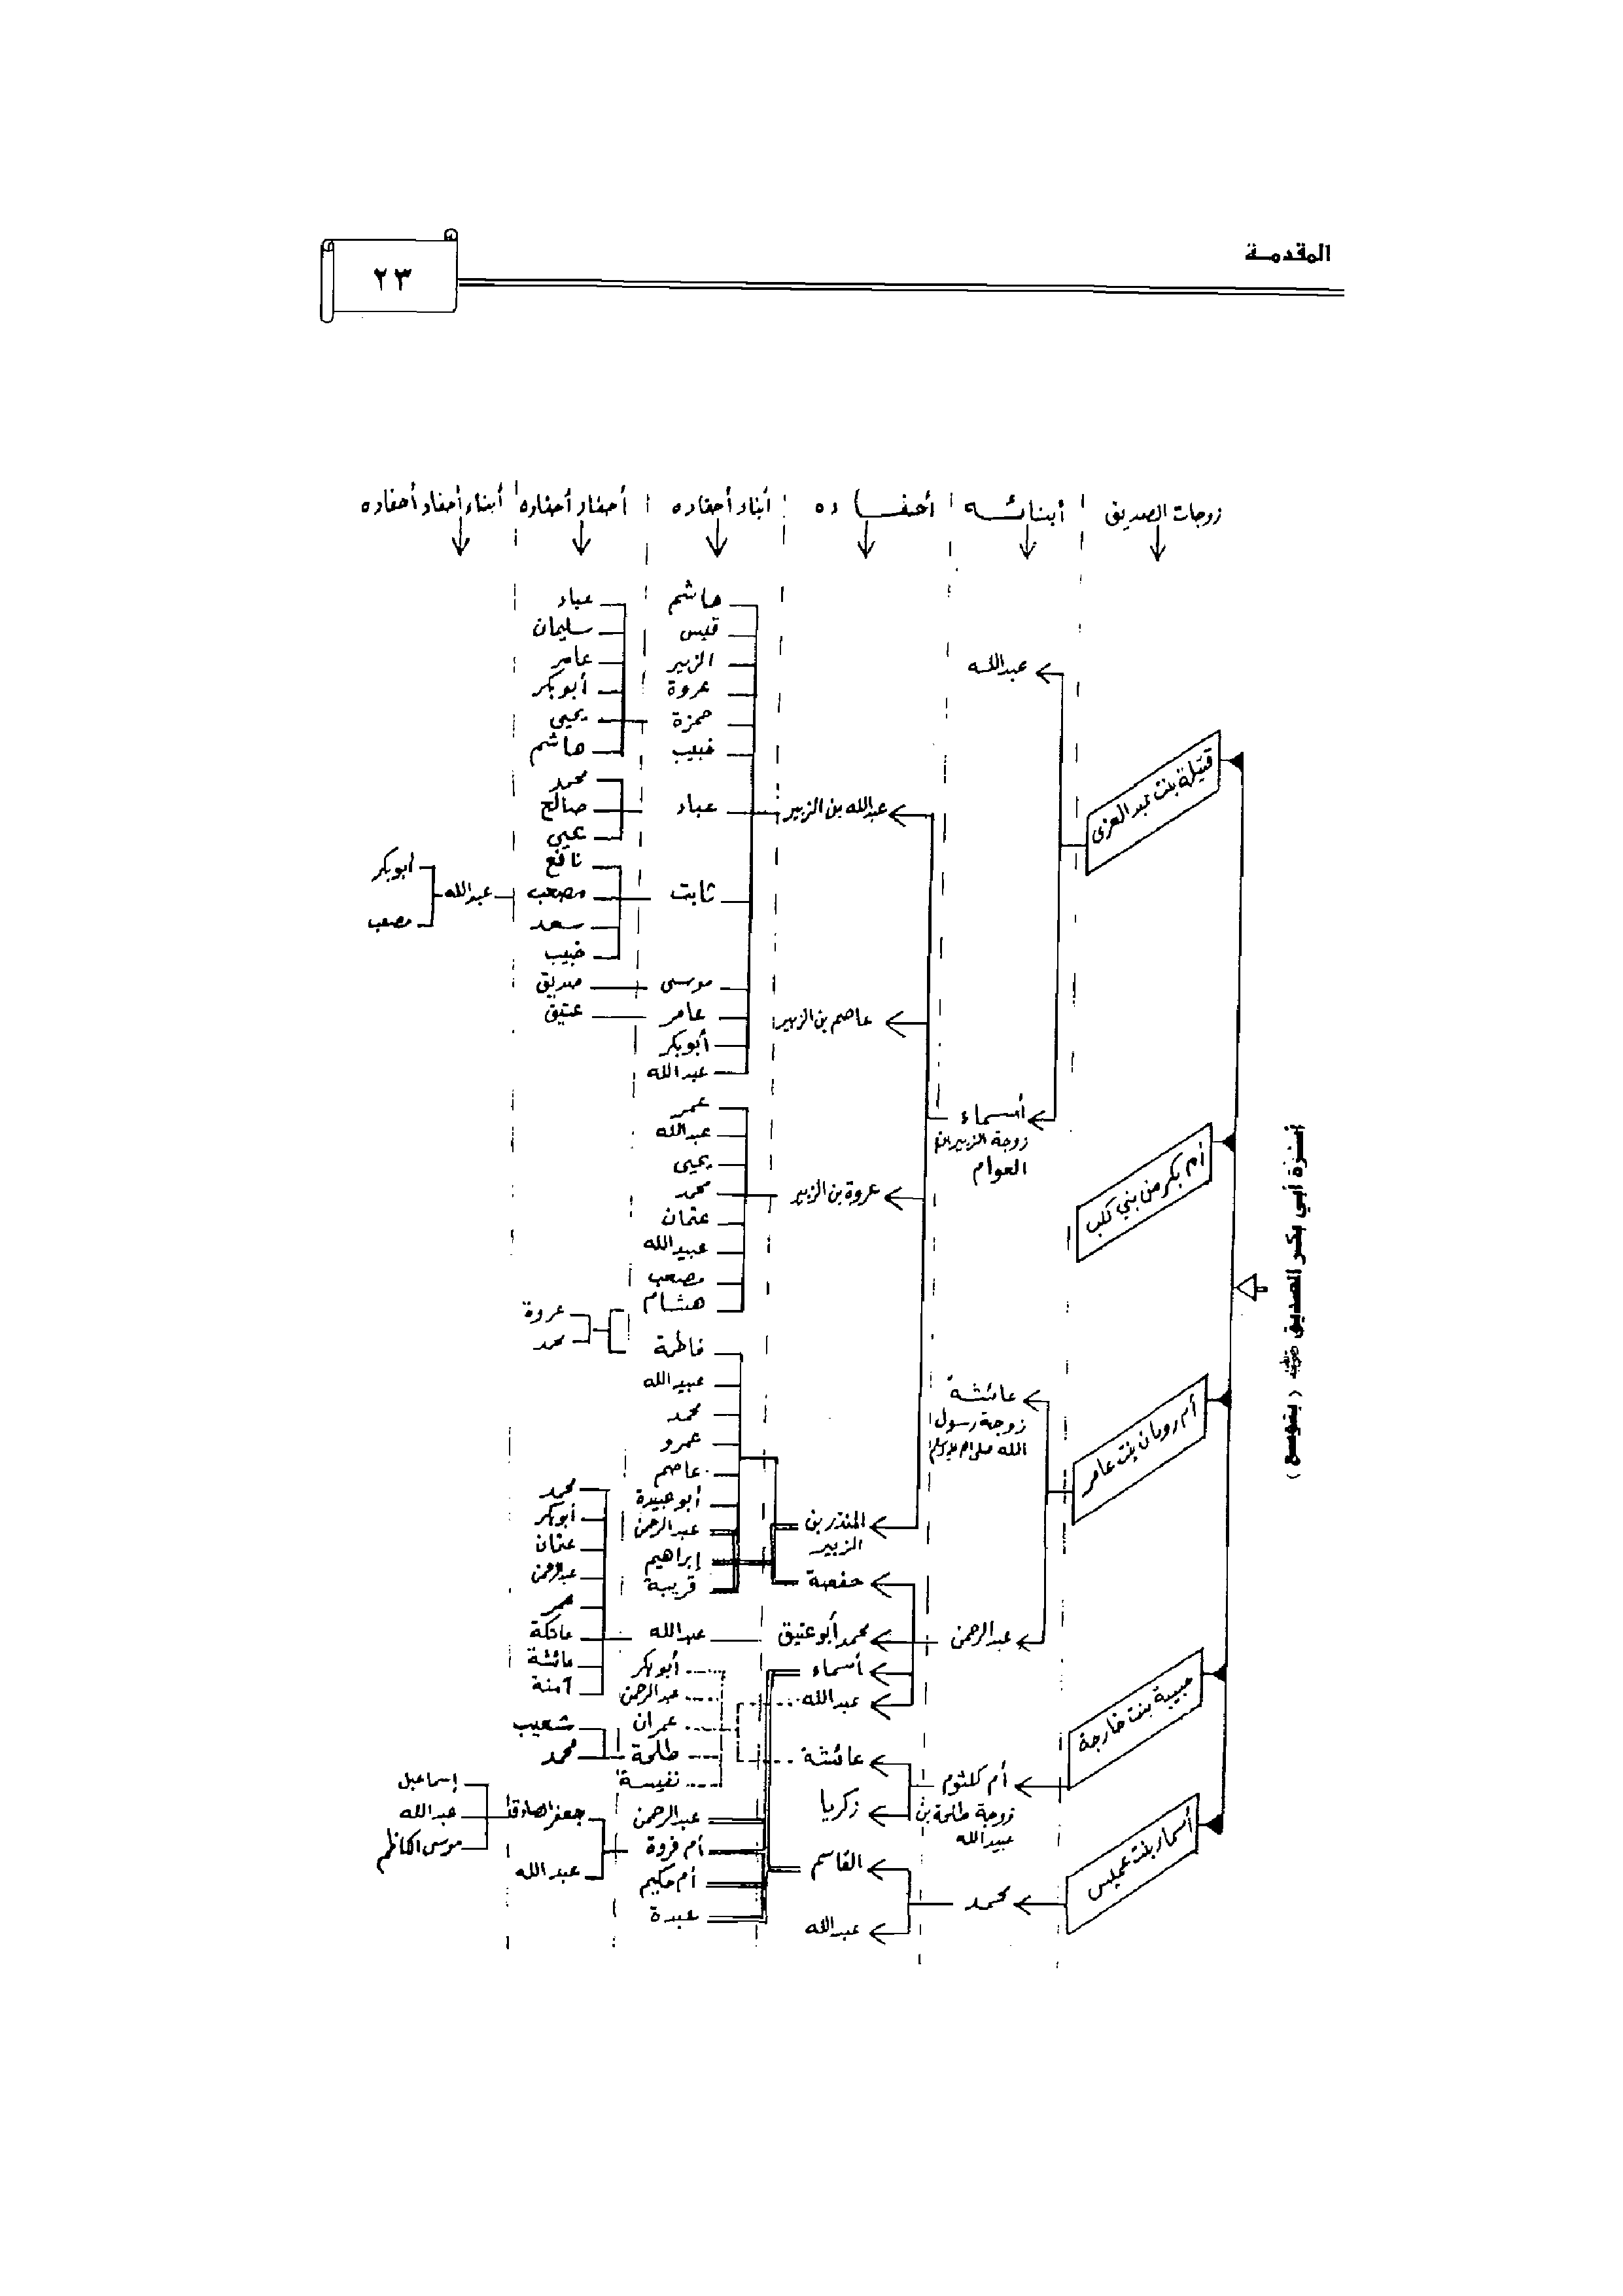 المقدمة
٢٣
أسرة أبي بكر الصديق رضي الله عنه (بتوسع)
زوجات الصديق
أبنائه
أحفاده
أبناء أحفاده
أحفاد أحفاده
أبناء أحفاد أحفاده
قتيلة بنت عبد العزى
أم بكر من بني كلب
أم رومان بنت عامر
حبيبة بنت خارجة
أسماء بنت عميس
عبدالله
أسماء
زوجة الزبير ابن
العوام
عائشة
زوجة رسول
الله صلى الله عليه وسلم
عبدالرحمن
أم كلثوم
زوجة طلحة بن
عبيدالله
محمد
عبدالله بن الزبير
عاصم بن الزبير
عروة بن الزبير
المنذر بن
الزبير
حفصة
محمد أبو عتيق
أسماء
عبدالله
عائشة
زكريا
القاسم
عبدالله
هاشم
قيس
الزبير
عروة
حمزة
خبيب
عباد
ثابت
موسى
عامر
أبوبكر
عبدالله
عمر
عبدالله
يحيى
محمد
عثمان
عبيدالله
مصعب
هشام
فاطمة
عبيدالله
محمد
عمرو
عاصم
أبو عبيدة
عبدالرحمن
إبراهيم
قريبة
عبدالله
أبوبكر
عبدالرحمن
عمران
طلحة
نفيسة
عبدالرحمن
أم فروة
أم حكيم
عبدة
عباد
سليمان
عامر
أبوبكر
يحيى
هاشم
محمد
صالح
يحيى
نافع
مصعب
سعد
خبيب
صديق
عتيق
عروة
محمد
محمد
أبوبكر
عثمان
عبدالرحمن
عمر
عاتكة
عائشة
آمنة
شعيب
محمد
جعفر الصادق
عبدالله
عبدالله
أبوبكر
مصعب
إسماعيل
عبدالله
موسى الكاظم